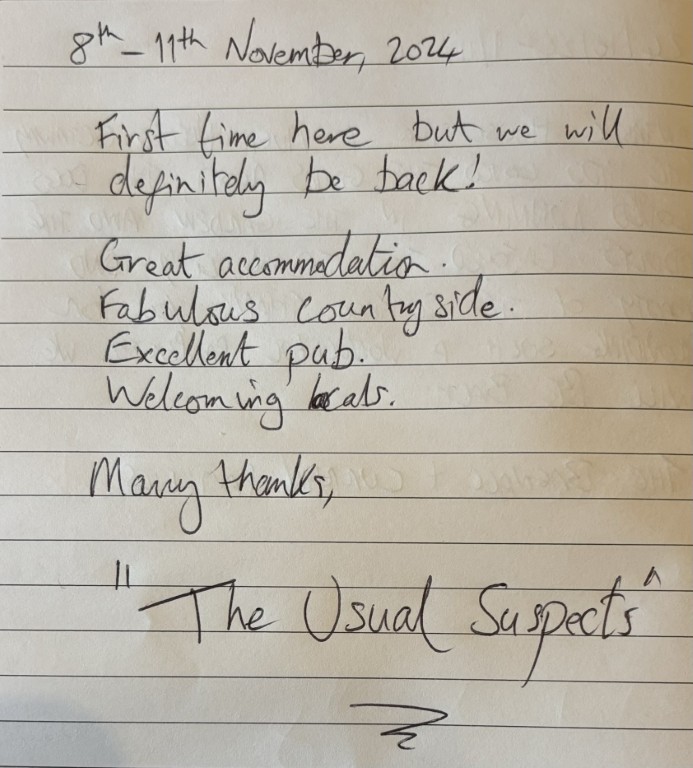 8th - 11th November, 2024
First time here but we will
definitely be back!
Great accommodation.
Fabulous countryside.
Excellent pub.
Welcoming locals.
Many thanks,
"The Usual Suspects"